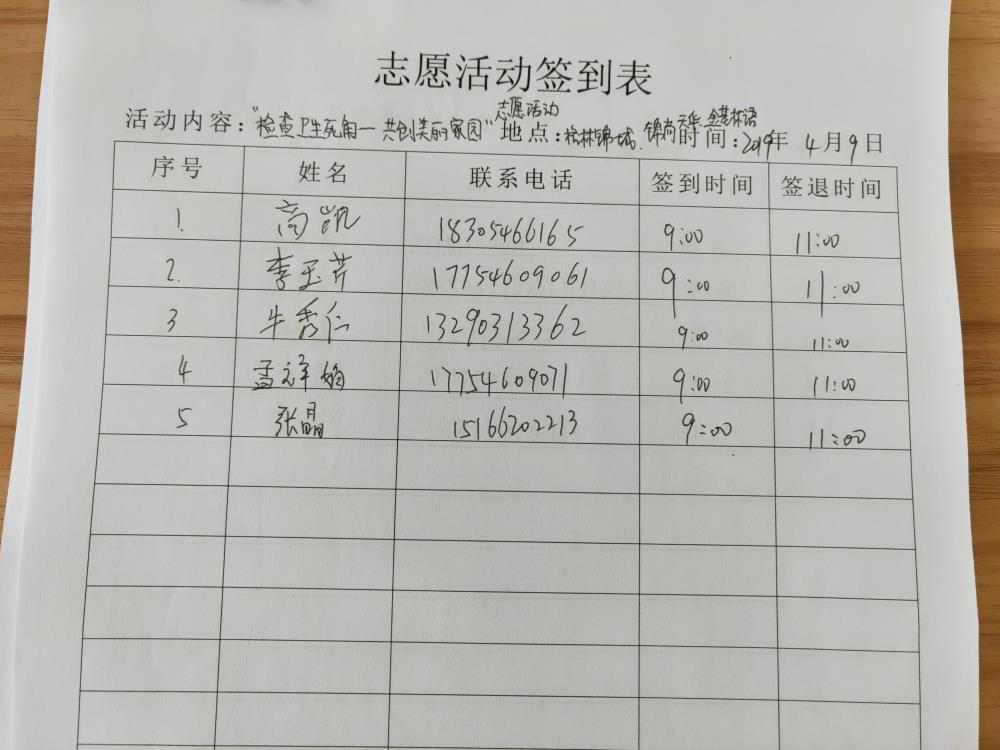 志愿活动签到表
活动内容："检查卫生死角一共创美丽家园"志愿活动 地点：桂林锦城.锦尚天华.金茂林语 时间：2019年 4月9日
序号 姓名 联系电话 签到时间 签退时间
1. 高凯 18305466165 9:00 11:00
2. 李玉芹 17754609061 9:00 11:00
3 牛秀仁 13290313362 9:00 11:00
4 孟祥娟 17754609071 9:00 11:00
5 张晶 15166202213 9:00 11:00